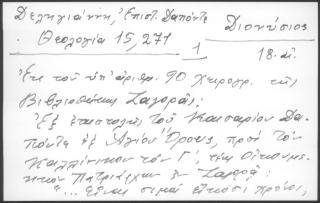 Δεληγιάννη, Ἐπιστ. Δαπόντε
Διονύσιος
Θεολογία 15, 271
1
18. αἰ.
Ἐκ τοῦ ὑπ' ἀριθμ. 90 χειρογρ. τῆς
Βιβλιοθήκης Ζαγορᾶς:
Ἐξ ἐπιστολῆς τοῦ Καισαρίου Δα-
πόντε ἐξ Ἁγίου Ὄρους, πρὸς τὸν
Καλλίνικον τὸν Γ', τὸν Οἰκουμε-
νικὸν Πατριάρχην ἐν Ζαγορᾷ:
"... Εἶναι σιμὰ εἴκοσι χρόνοι,